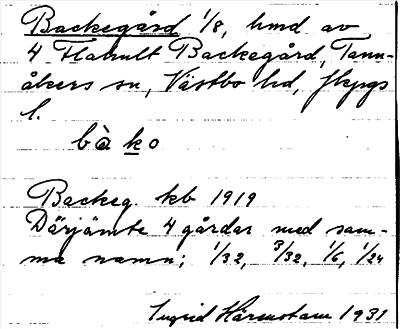 Backegård 1/8, hmd av
4 Flahult Backegård, Tann-
åkers sn, Västbo hd, Jkpgs
l.
bà ko
Backeg. kb 1919
Därjämte 4 gårdar med sam-
ma namn; 1/32, 3/32, 1/6, 1/24
Ingrid 1931